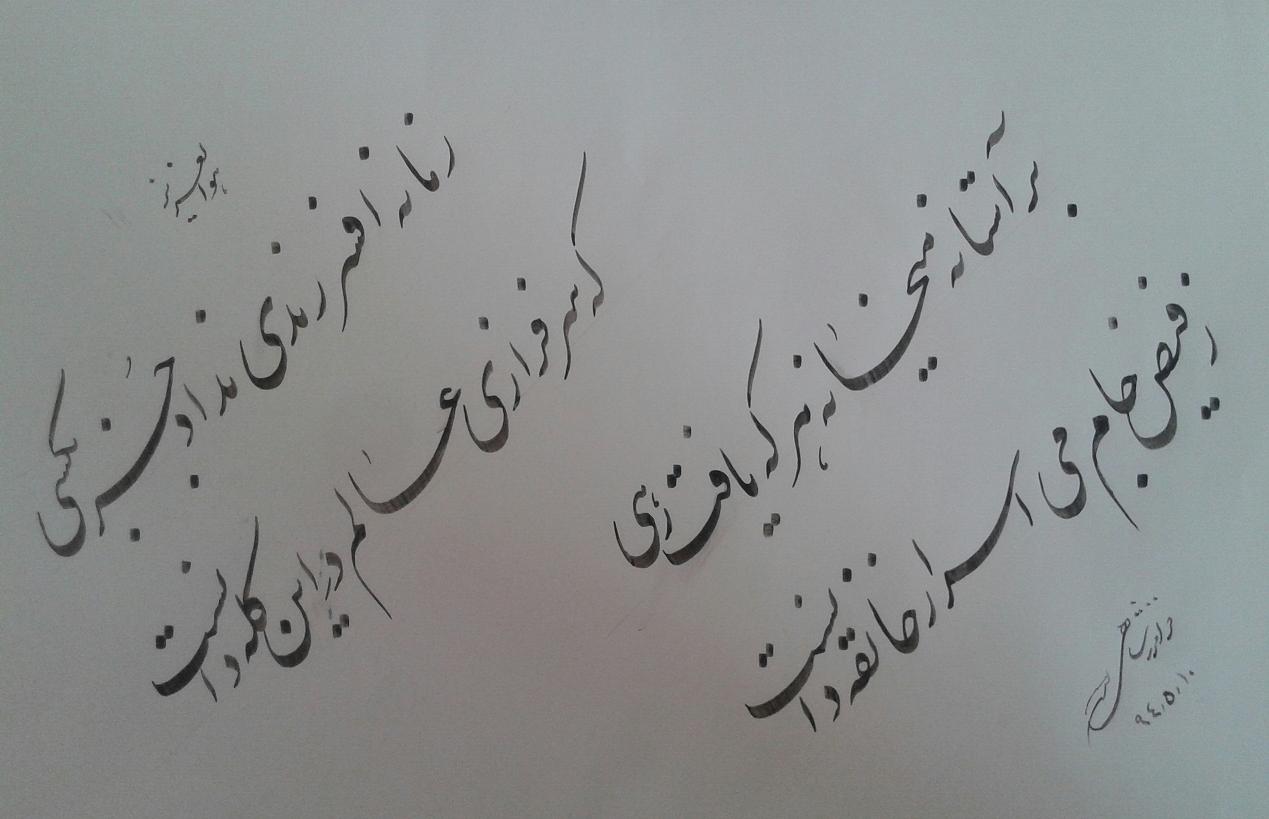 هوالعزیز
بر آستانه میخانه هر که یافت رهی
ز فیض جام می اسرار خانقه دانست
زمانه افسر رندی نداد جز به کسی
که سرفرازی عالم در این کله دانست
۹۴،۵،۱۰